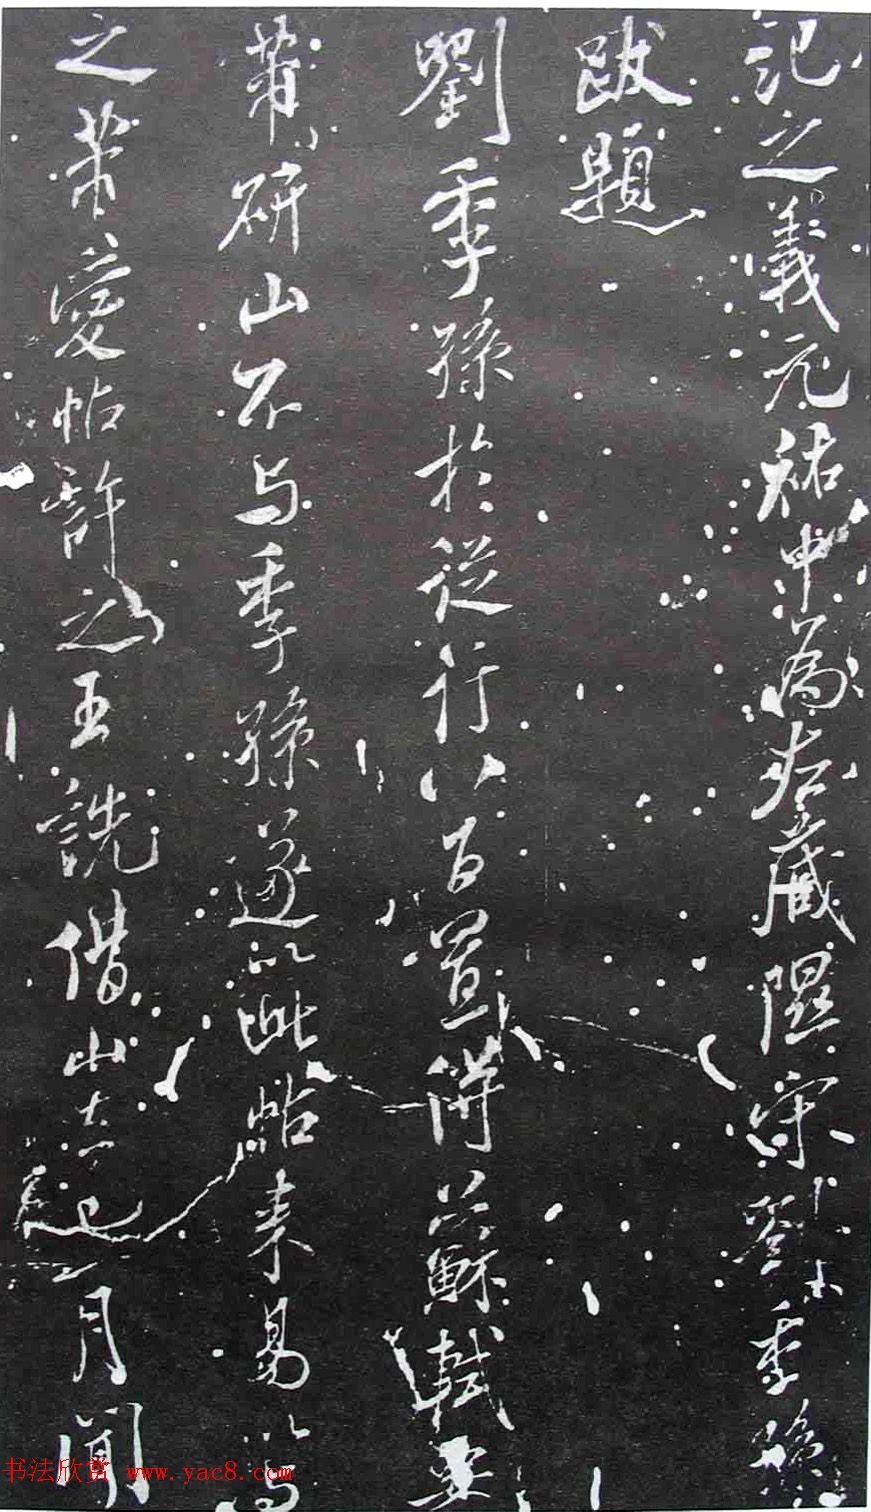 記之義元祐中為左藏隰守劉季孫
跋題
劉季孫於從行以百置得蘇軾要
芾研山不与季孫遂以此帖来易以与
之芾愛帖許之王詵借山去月聞
书法欣赏 www.yac8.com